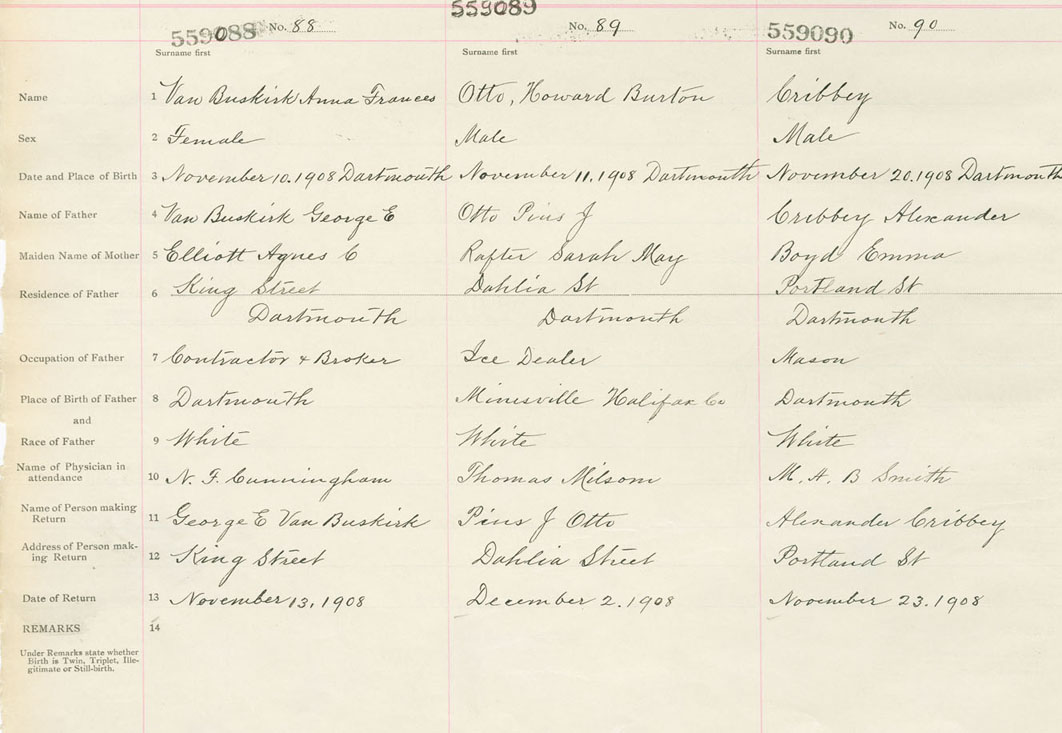 559088 No. 88 559089 No. 89 559090 No. 90
Surname first Surname first Surname first
Name 1 Van Buskirk Anna Frances Otto, Howard Burton Cribbey
Sex 2 Female Male Male
Date and Place of Birth 3 November 10. 1908 Dartmouth November 11, 1908 Dartmouth November 20. 1908 Dartmouth
Name of Father 4 Van Buskirk George E Otto Pius J Cribbey Alexander
Maiden Name of Mother 5 Elliott Agnes C Rafter Sarah May Boyd Emma
Residence of Father 6 King Street Dahlia St Portland St
Dartmouth Dartmouth Dartmouth
Occupation of Father 7 Contractor & Broker Ice Dealer Mason
Place of Birth of Father 8 Dartmouth Minesville Halifax Co Dartmouth
and
Race of Father 9 White White White
Name of Physician in
attendance 10 N. F. Cunningham Thomas Milsom M. A. B Smith
Name of Person making
Return 11 George E Van Buskirk Pius J Otto Alexander Cribbey
Address of Person mak-
ing Return 12 King Street Dahlia Street Portland St
Date of Return 13 November 13, 1908 December 2. 1908 November 23. 1908
REMARKS 14
Under Remarks state whether
Birth is Twin, Triplet, Ille-
gitimate or Still-birth.